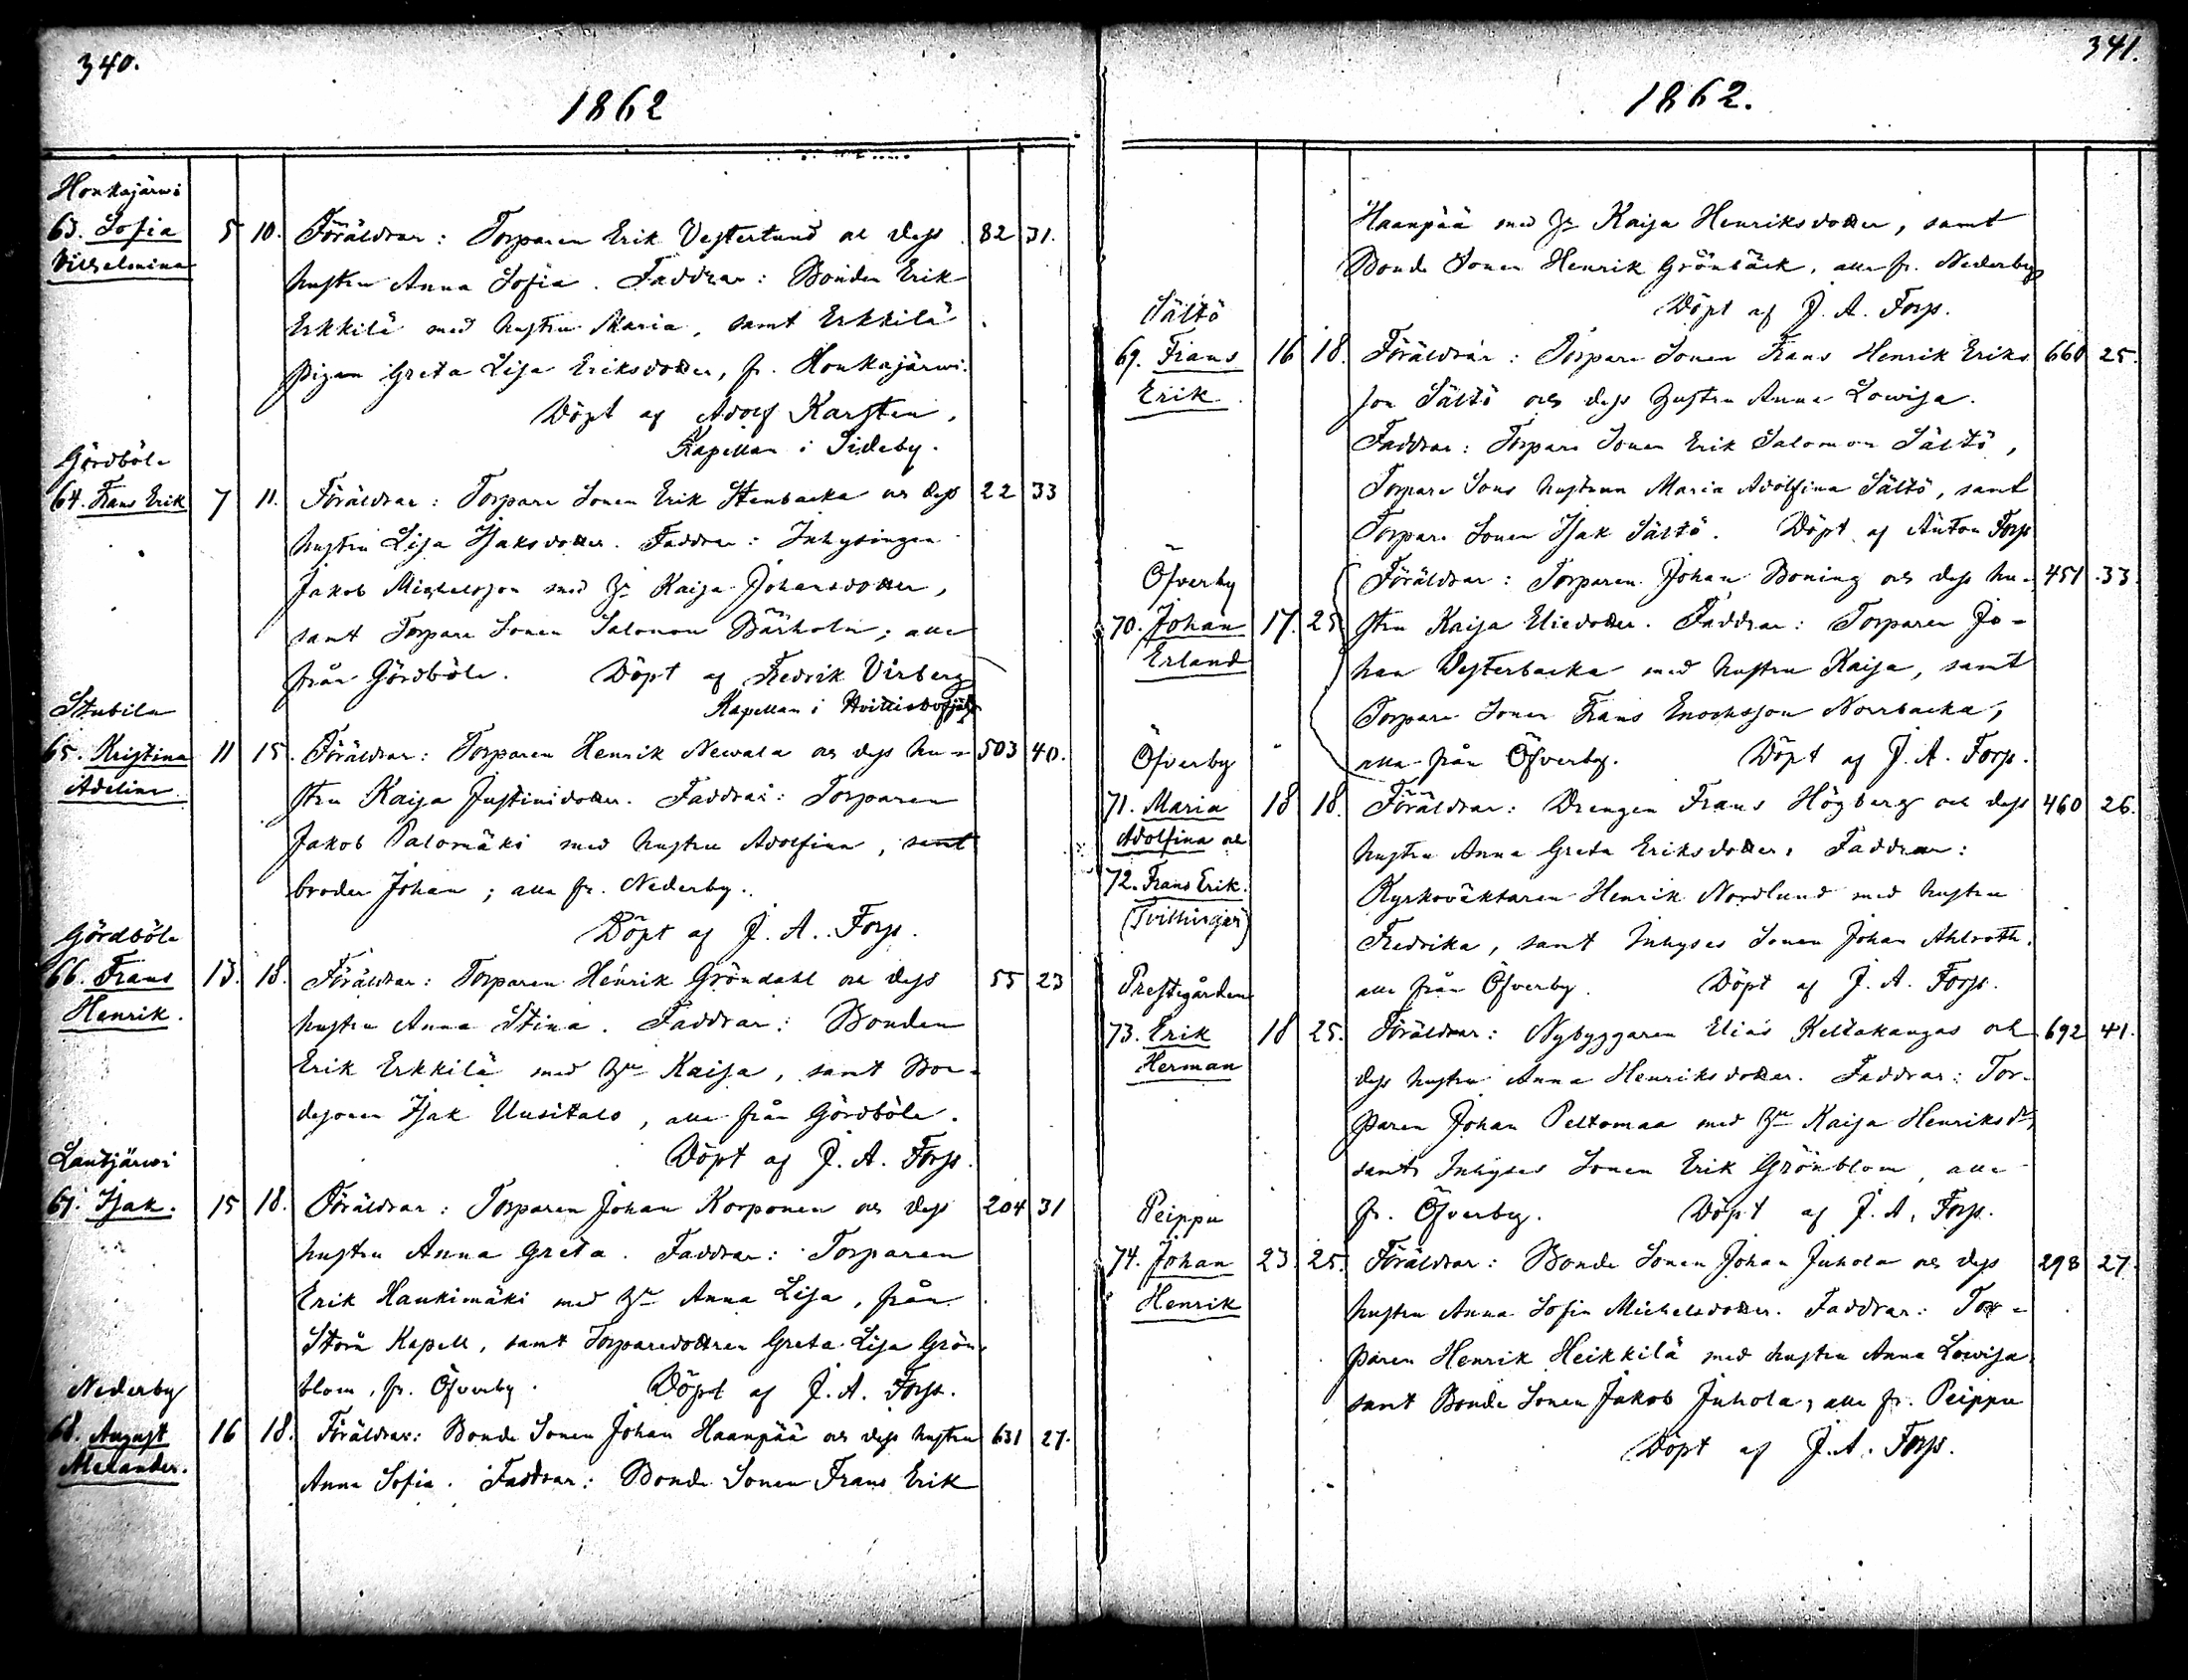 340.
1862
Honkajärwi
63. Sofia 5 10. Föräldrar: Torparen Erik Vesterlund oc dess 82 31.
Vilhelmina
hustru Anna Sofia. Faddrar: Bonden Erik
Erkkilä med hustru Maria, samt Erkkilä
pigan Greta Lisa Eriksdotter, fr. Honkajärwi.
Döpt af Adolf Karsten,
Kapellan i Sideby.
Gördböle
64. Frans Erik 7 11. Föräldrar: Torpare Sonen Erik Stenbacka oc dess 22 33
hustru Lisa Isaksdotter. Faddrar: Inhysingen
Jakob Michelsson med Hu Kaisa Johansdotter,
samt Torpare Sonen Salomon Bärholm; alla
från Gördböle. Döpt af Fredrik Virberg
Kapellan i
Stubila
65. Kristina 11 15. Föräldrar: Torparen Henrik Newala oc dess hu- 503 40.
Adelina
stru Kaisa Justinidotter. Faddrar: Torparen
Jakob Palomäki med hustru Adolfina, samt
broder Johan; alla fr. Nederby.
Döpt af J. A. Forss.
Gördböle
66. Frans 13. 18. Föräldrar: Torparen Henrik Gröndahl oc dess 55 23
Henrik.
hustru Anna Stina. Faddrar: Bonden
Erik Erkkilä med Hu Kaisa, samt Bon-
desonen Isak Uusitalo, alla från Gördböle.
Döpt af J. A. Forss.
Lantjärwi
67. Isak. 15 18. Föräldrar: Torparen Johan Korponen oc dess 204 31
hustru Anna Greta. Faddrar: Torparen
Erik Haukimäki med Hu Anna Lisa, från
Storå Kapell, samt Torparedottren Greta Lisa Grön-
blom, fr. Öfverby. Döpt af J. A. Forss.
Nederby
68. August 16 18. Föräldrar: Bonde Sonen Johan Haanpää oc dess hustru 631 27.
Melander.
Anna Sofia. Faddrar: Bonde Sonen Frans Erik
341.
1862.
Haanpää med Hu Kaisa Henriksdotter, samt
Bonde Sonen Henrik Grönbäck, alla fr. Nederby
Döpt af J. A. Forss.
Sältö
69. Frans 16 18. Föräldrar: Torpare Sonen Frans Henrik Eriks 660 25.
Erik
son Sältö och dess hustru Anna Lowisa.
Faddrar: Torpare Sonen Erik Salomon Sältö,
Torpare Sons hustrun Maria Adolfina Sältö, samt
Torpare Sonen Isak Sältö. Döpt af Anton Forss
Öfverby
70. Johan 17. 25 Föräldrar: Torparen Johan Boning och dess hu- 451 33
Erland
stru Kaisa Eliedotter. Faddrar: Torparen Jo-
han Vesterbacka med hustru Kaisa, samt
Torpare Sonen Frans Enochsson Norrbacka,
alla från Öfverby. Döpt af J. A. Forss.
Öfverby
71. Maria 18 18. Föräldrar: Drengen Frans Högberg och dess 460 26.
Adolfina och
72. Frans Erik.
(Tvillingar)
hustru Anna Greta Eriksdotter. Faddrar:
Kyrkoväktaren Henrik Nordlund med hustru
Fredrika, samt Inhyses Sonen Johan Ahlroth.
alla från Öfverby. Döpt af J. A. Forss.
Prestgården
73. Erik 18 25. Föräldrar: Nybyggaren Elias Keltakangas och 692 41.
Herman
dess hustru Anna Henriksdotter. Faddrar: Tor-
paren Johan Peltomaa med Hu Kaisa Henriksdr
samt Inhyses Sonen Erik Grönblom, alla
fr. Öfverby. Döpt af J. A. Forss.
Peippu
74. Johan 23 25. Föräldrar: Bonde Sonen Johan Juhola oc dess 298 27
Henrik
hustru Anna Sofia Michelsdotter. Faddrar: Tor-
paren Henrik Heikkilä med hustru Anna Lowisa
samt Bonde Sonen Jakob Juhola, alla fr. Peippu
Döpt af J. A. Forss.